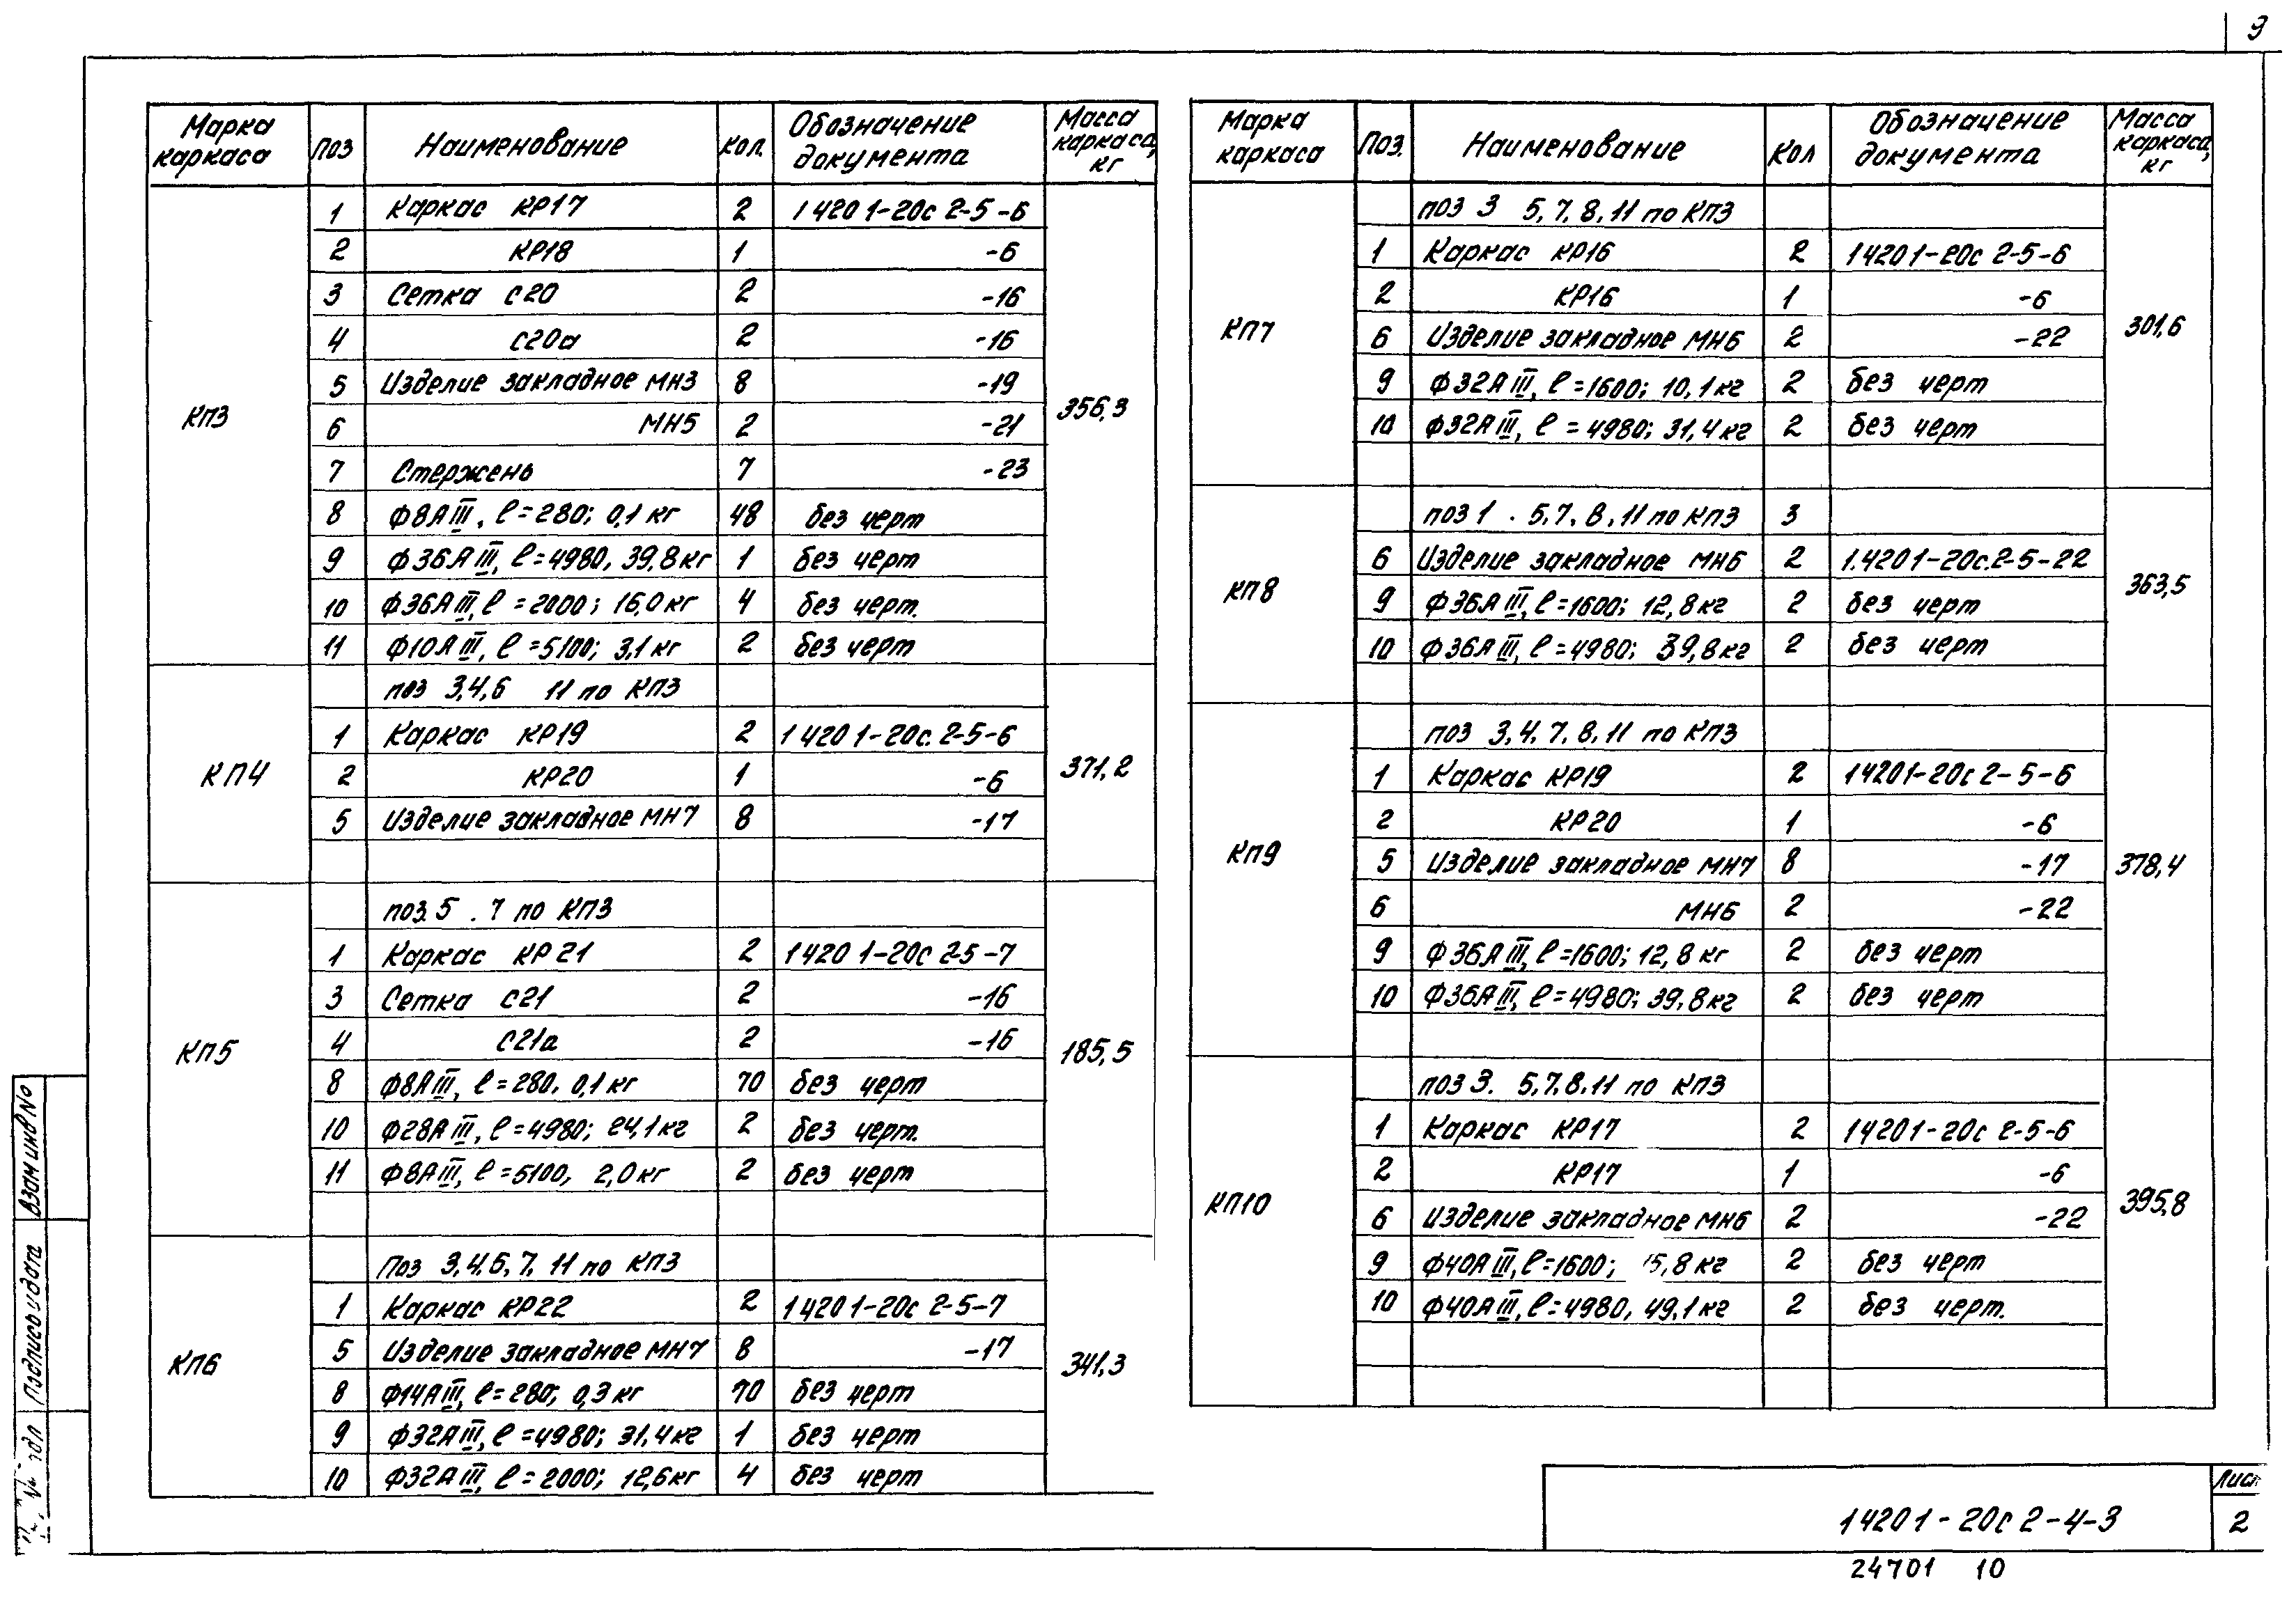 9
Марка каркаса | Поз | Наименование | Кол. | Обозначение документа | Масса каркаса, кг
КП3 | 356,3
1 | Каркас КР17 | 2 | 1 420 1-20с 2-5-6
2 | КР18 | 1 | -6
3 | Сетка С20 | 2 | -16
4 | С20а | 2 | -16
5 | Изделие закладное МН3 | 8 | -19
6 | МН5 | 2 | -21
7 | Стержень | 7 | -23
8 | Ф8АIII, ℓ=280; 0,1 кг | 48 | без черт
9 | Ф36АIII, ℓ=4980, 39,8кг | 1 | без черт
10 | Ф36АIII, ℓ=2000; 16,0кг | 4 | без черт.
11 | Ф10АIII, ℓ=5100; 3,1кг | 2 | без черт
КП4 | 371,2
поз 3,4,6 11 по КП3
1 | Каркас КР19 | 2 | 1 420 1-20с. 2-5-6
2 | КР20 | 1 | -6
5 | Изделие закладное МН7 | 8 | -17
КП5 | 185,5
поз.5 . 7 по КП3
1 | Каркас КР21 | 2 | 1420 1-20с 2-5-7
3 | Сетка С21 | 2 | -16
4 | С21а | 2 | -16
8 | Ф8АIII, ℓ=280, 0,1кг | 70 | без черт
10 | Ф28АIII, ℓ=4980; 24,1кг | 2 | без черт.
11 | Ф8АIII, ℓ=5100, 2,0кг | 2 | без черт
КП6 | 341,3
Поз 3,4,6,7, 11 по КП3
1 | Каркас КР22 | 2 | 1420 1-20с 2-5-7
5 | Изделие закладное МН7 | 8 | -17
8 | Ф14АIII, ℓ=280; 0,3кг | 70 | без черт
9 | Ф32АIII, ℓ=4980; 31,4кг | 1 | без черт
10 | Ф32АIII, ℓ=2000; 12,6кг | 4 | без черт
Марка каркаса | Поз. | Наименование | Кол | Обозначение документа | Масса каркаса, кг
КП7 | 301,6
поз 3 5,7,8,11 по КП3
1 | Каркас КР16 | 2 | 1420 1-20с 2-5-6
2 | КР16 | 1 | -6
6 | Изделие закладное МН6 | 2 | -22
9 | Ф32АIII, ℓ=1600; 10,1кг | 2 | без черт
10 | Ф32АIII, ℓ=4980; 31,4кг | 2 | без черт
КП8 | 363,5
поз 1 . 5,7,8,11 по КП3 | 3
6 | Изделие закладное МН6 | 2 | 1.420 1-20с.2-5-22
9 | Ф36АIII, ℓ=1600; 12,8кг | 2 | без черт
10 | Ф36АIII, ℓ=4980; 39,8кг | 2 | без черт
КП9 | 378,4
поз 3,4,7,8,11 по КП3
1 | Каркас КР19 | 2 | 1420 1-20с 2-5-6
2 | КР20 | 1 | -6
5 | Изделие закладное МН7 | 8 | -17
6 | МН6 | 2 | -22
9 | Ф36АIII, ℓ=1600; 12,8 кг | 2 | без черт
10 | Ф36АIII, ℓ=4980; 39,8кг | 2 | без черт
КП10 | 395,8
поз 3. 5,7,8,11 по КП3
1 | Каркас КР17 | 2 | 1420 1-20с 2-5-6
2 | КР17 | 1 | -6
6 | Изделие закладное МН6 | 2 | -22
9 | Ф40АIII, ℓ=1600; 15,8кг | 2 | без черт
10 | Ф40АIII, ℓ=4980, 49,1кг | 2 | без черт.
Взам инв №
Подпись и дата
подл
1 420 1-20с 2-4-3
Лист
2
24701 10